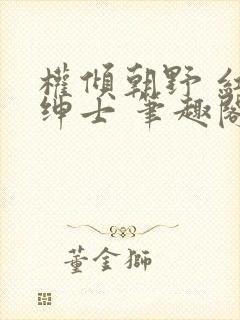 權傾朝野 紅
紳士 筆趣閣
董金獅